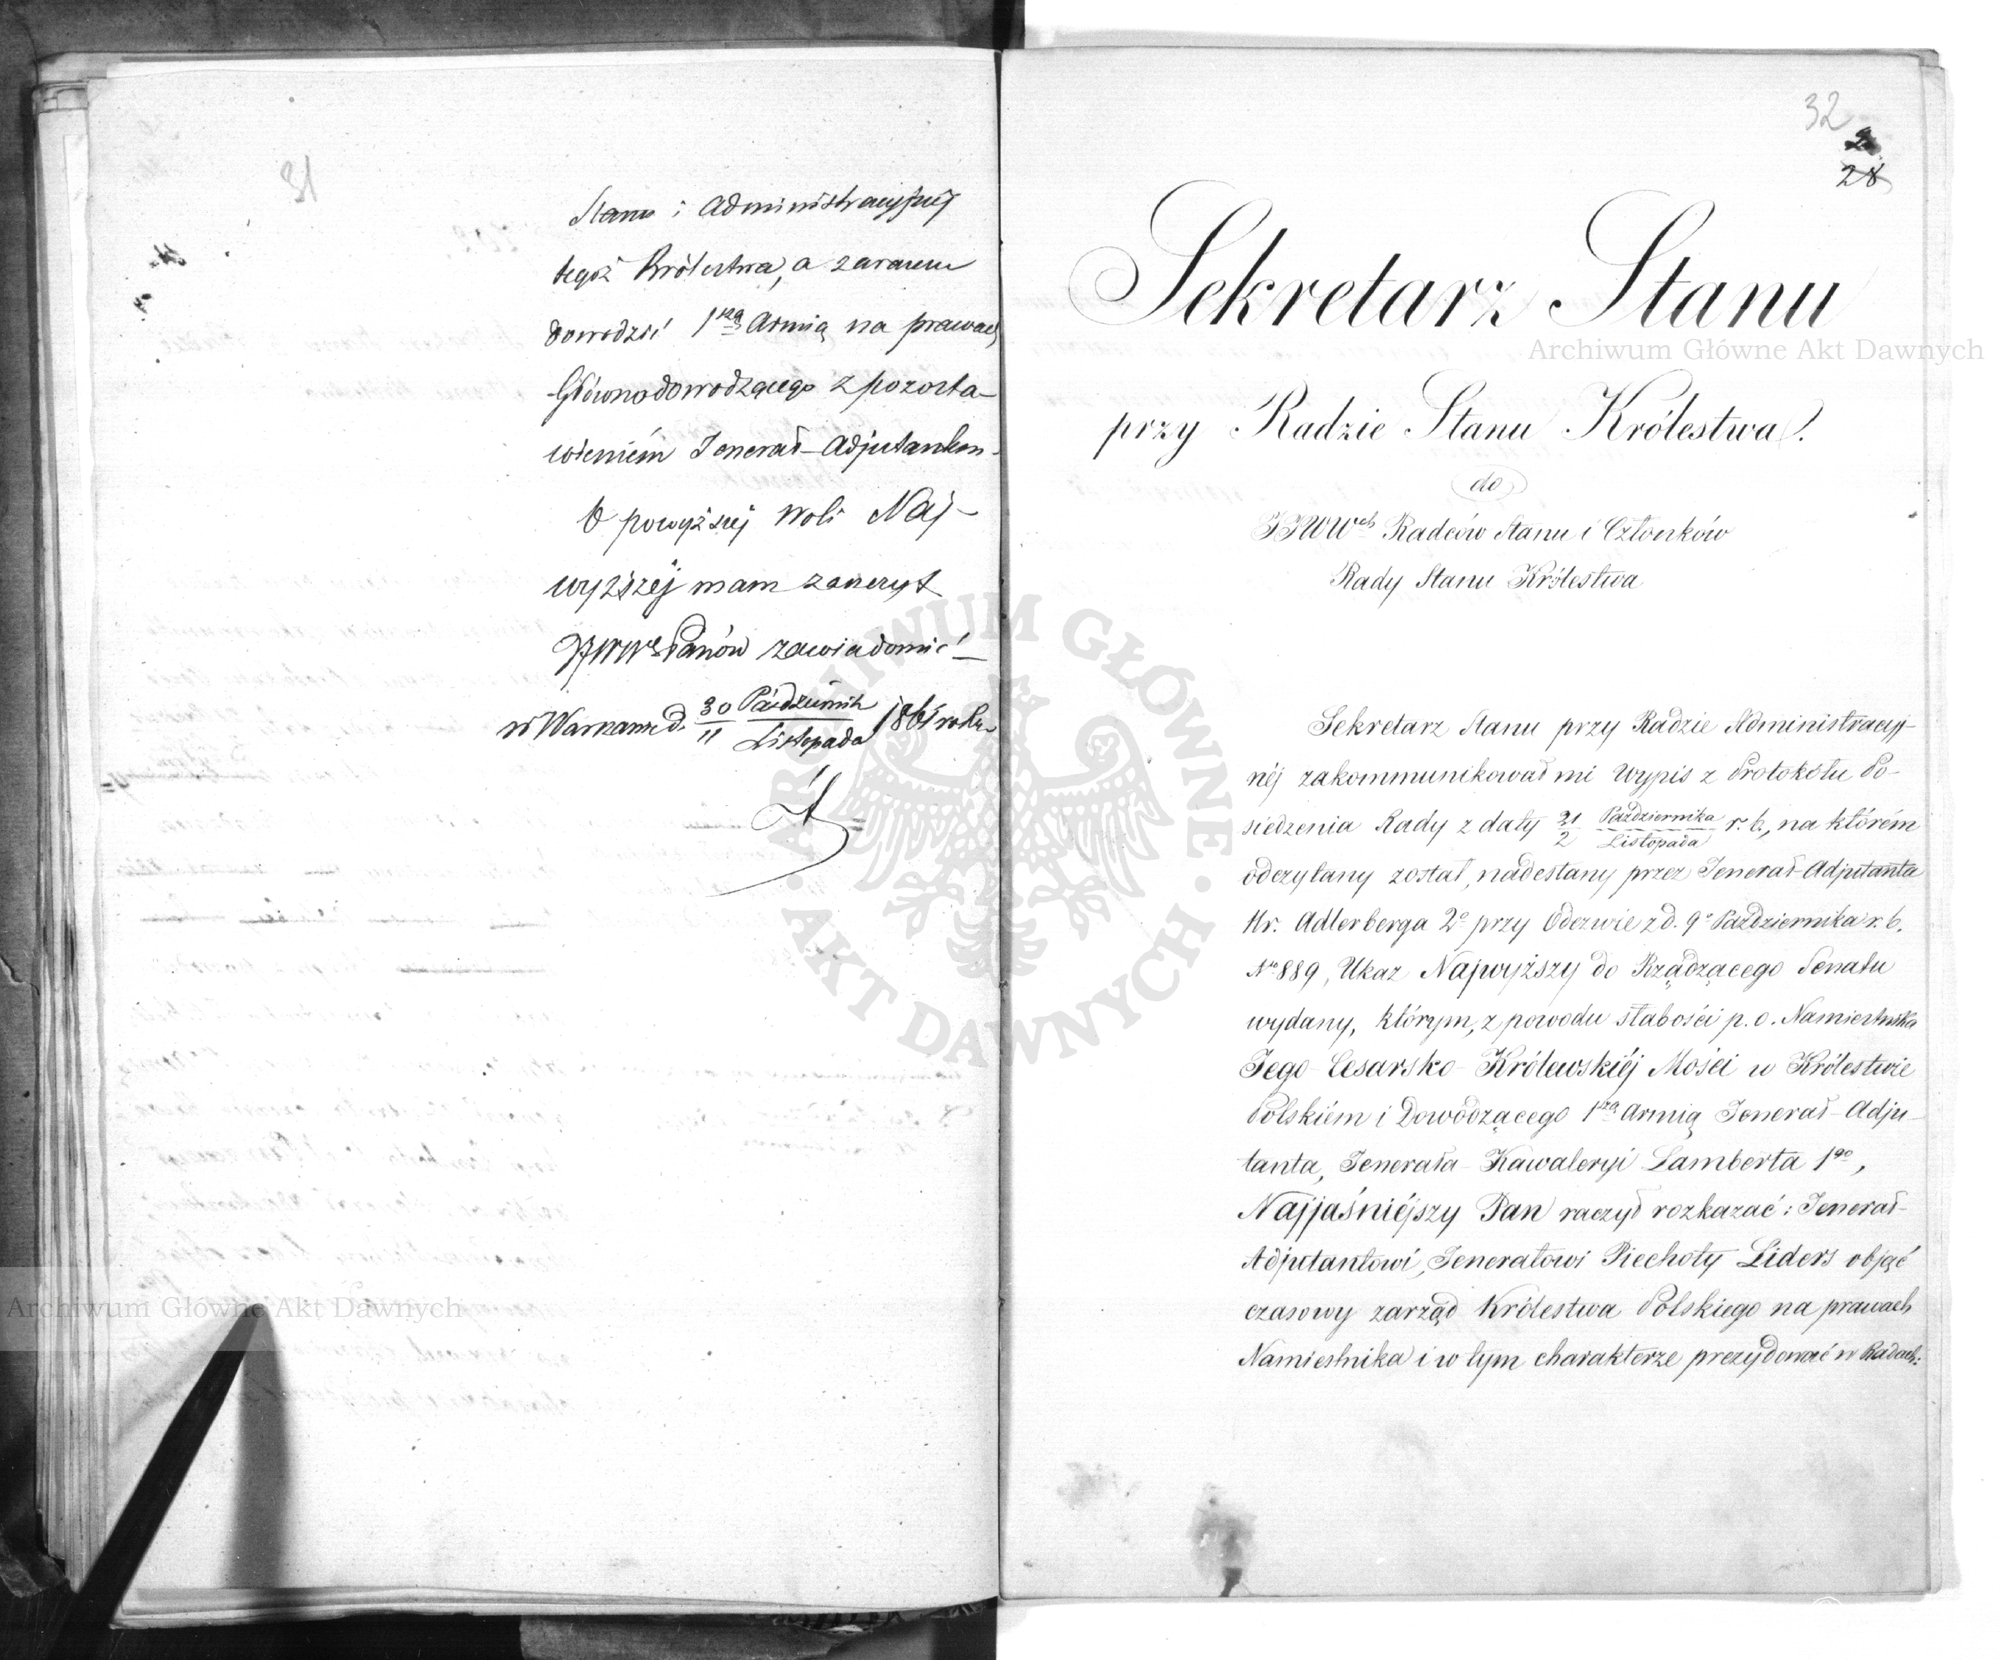 31
Stanu i Administracyjnej
tegoż Królestwa, a zarazem
dowodzić 1szą Armią na prawach
Głównodowodzącego z pozosta-
wieniém Jenerał-Adjutantem.
O powyższej woli Naj-
wyższéj mam zaszczyt
JJWWch Panów zawiadomić
w Warszawie d. 30/11 Października/Listopada 1861 roku
32
28
Sekretarz Stanu
przy Radzie Stanu Królestwa.
do
JJWWch Radców Stanu i Członków
Rady Stanu Królestwa
Sekretarz Stanu przy Radzie Administracyj-
néj zakommunikował mi wypis z Protokółu Po-
siedzenia Rady z daty 21/2 Października/Listopada r. b., na którém
odczytany został, nadesłany przez Jenerał-Adjutanta
Hr. Adlerberga 2o przy Odezwie z d. 9o Października r. b.
No 889, Ukaz Najwyższy do Rządzącego Senatu
wydany, którym, z powodu słabości p. o. Namiestnika
Jego Cesarsko-Królewskiéj Mości w Królestwie
Polskiém i Dowodzącego 1szą Armią Jenerał-Adju-
tanta, Jenerała Kawaleryi Lamberta 1go,
Najjaśniéjszy Pan raczył rozkazać: Jenerał-
Adjutantowi, Jenerałowi Piechoty Liders objąć
czasowy zarząd Królestwa Polskiego na prawach
Namiestnika i w tym charakterze prezydować w Radach:
Archiwum Główne Akt Dawnych
Archiwum Główne Akt Dawnych
ARCHIWUM GŁÓWNE · AKT DAWNYCH ·